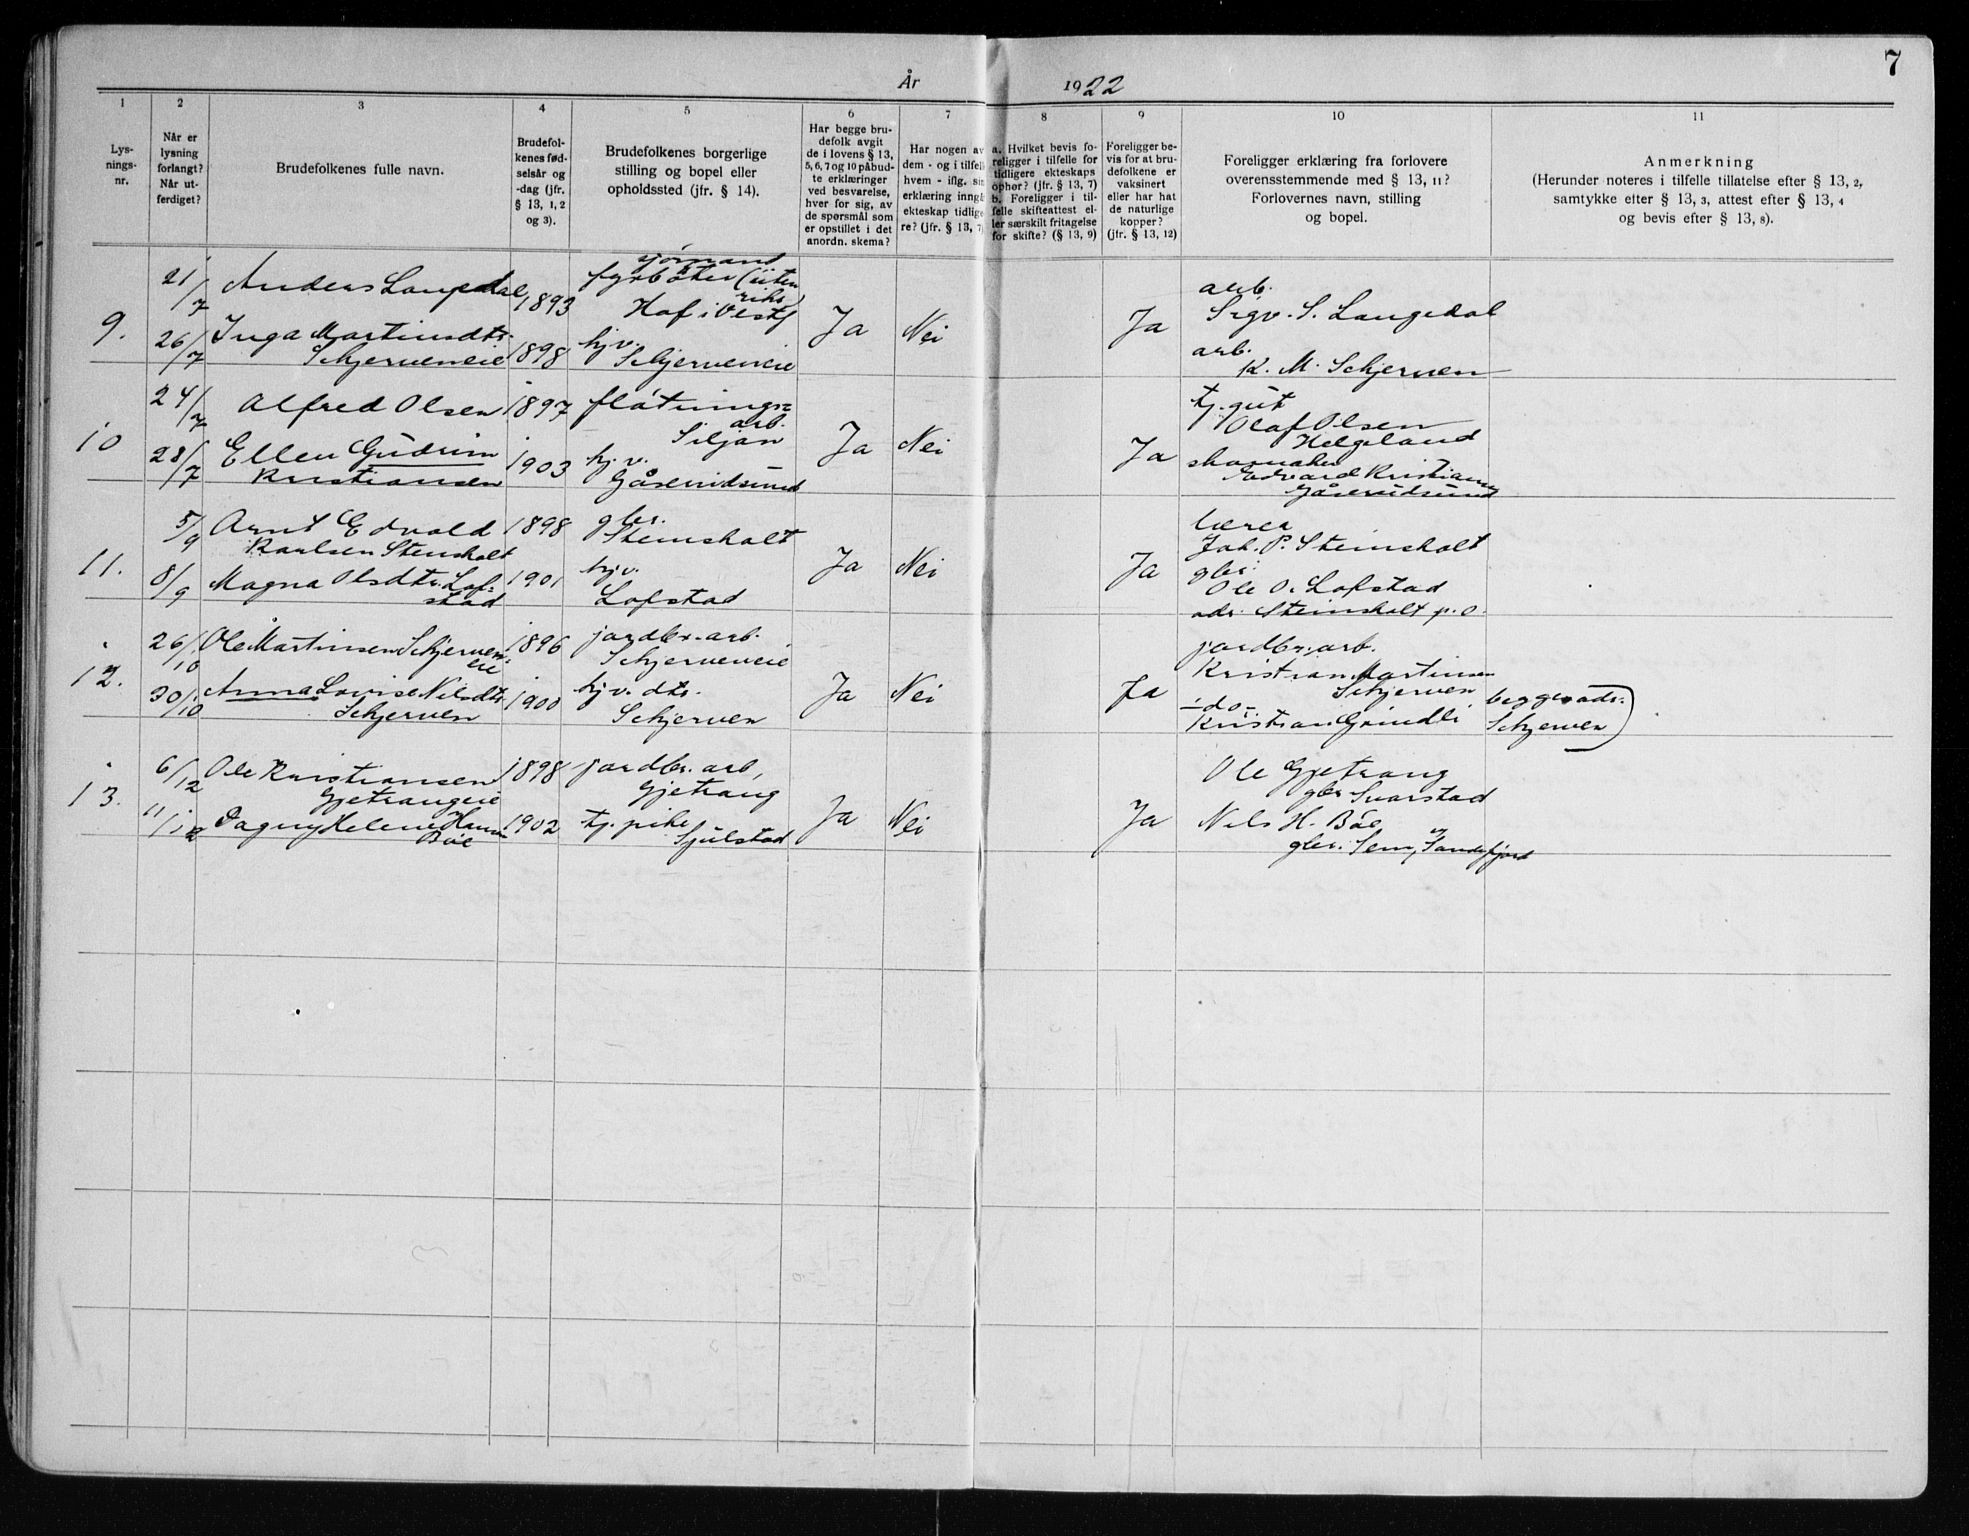 7
År 1922
1 2 3 4 5 6 7 8 9 10 11
Lys-
nings-
nr.
Når er
lysning
forlangt?
Når ut-
ferdiget?
Brudefolkenes fulle navn.
Brudefol-
kenes fød-
selsår og
-dag (jfr.
§ 13, 1, 2
og 3).
Brudefolkenes borgerlige
stilling og bopel eller
opholdssted (jfr. § 14).
Har begge bru-
defolk avgit
de i lovens § 13,
5, 6, 7 og 10 påbud-
te erklæringer
ved besvarelse,
hver for sig, av
de spørsmål som
er opstillet i det
anordn. skema?
Har nogen av
dem - og i tilfelle
hvem - iflg. sin
erklæring inngå
ekteskap tidlige
re? (jfr. § 13, 7)
a. Hvilket bevis fo-
religger i tilfelle for
tidligere ekteskaps
ophør? (jfr. § 13, 7)
b. Foreligger i til-
felle skifteattest el-
ler særskilt fritagelse
for skifte? (§ 13, 9)
Foreligger be-
vis for at bru-
defolkene er
vaksinert
eller har hat
de naturlige
kopper?
(jfr. § 13, 12)
Foreligger erklæring fra forlovere
overensstemmende med § 13, 11?
Forlovernes navn, stilling
og bopel.
Anmerkning
(Herunder noteres i tilfelle tillatelse efter § 13, 2,
samtykke efter § 13, 3, attest efter § 13, 4
og bevis efter § 13, 8).
9.
21/7
26/7
Anders Langedal
1893
sjømand
fyrbøter (uten
riks)
Hof i Vestf
Inga Martinsdtr.
Skjerveneie
1898
hjv.
Skjerveneie
Ja
Nei
Ja
arb.
Sigv. S. Langedal
arb.
K. M. Skjerven
10
24/7
28/7
Alfred Olsen
1897
fløtnings=
arb.
Siljan
Ellen Gudrun
Kristiansen
1903
hj. v.
Gåserudsund
Ja
Nei
Ja
tj. gut
Olaf Olsen
Helgeland
skomaker
Edvard Kristiansen
Gåserudsund
11.
5/9
8/9
Arnt Edvald
Karlsen Stensholt
1898
gbr.
Stensholt
Magna Olsdtr. Lof=
stad
1901
hjv.
Lofstad
Ja
Nei
Ja
lærer
Joh. P. Steinsholt
gbr.
Ole O. Lofstad
adr. Steinsholt p. o.
12.
26/10
30/10
Ole Martinsen Skjerven=
eie
1896
jordbr. arb.
Skjerveneie
Anna Lovise Nilsdtr.
Skjerven
1900
hjv. dtr.
Skjerven
Ja
Nei
Ja
jordbr. arb.
Kristian Martinsen
Skjerven
- do -
Kristian Grindli
begges adr.
Skjerven
13.
6/12
11/12
Ole Kristiansen
Gjetrangeie
1898
jordbr. arb,
Gjetrang
Dagny Helene Hansen
Bøe
1902
tj. pike
Sjulstad
Ja
Nei
Ja
Ole Gjetrang
gbr Svarstad
Nils H. Bøe
gbr. Sem, Sandefjord